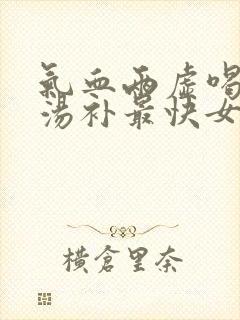 氣血兩虛喝
湯补最快女
橫倉里奈